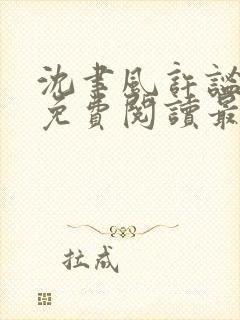 沈聿風許謐
免費閱讀最
拉成